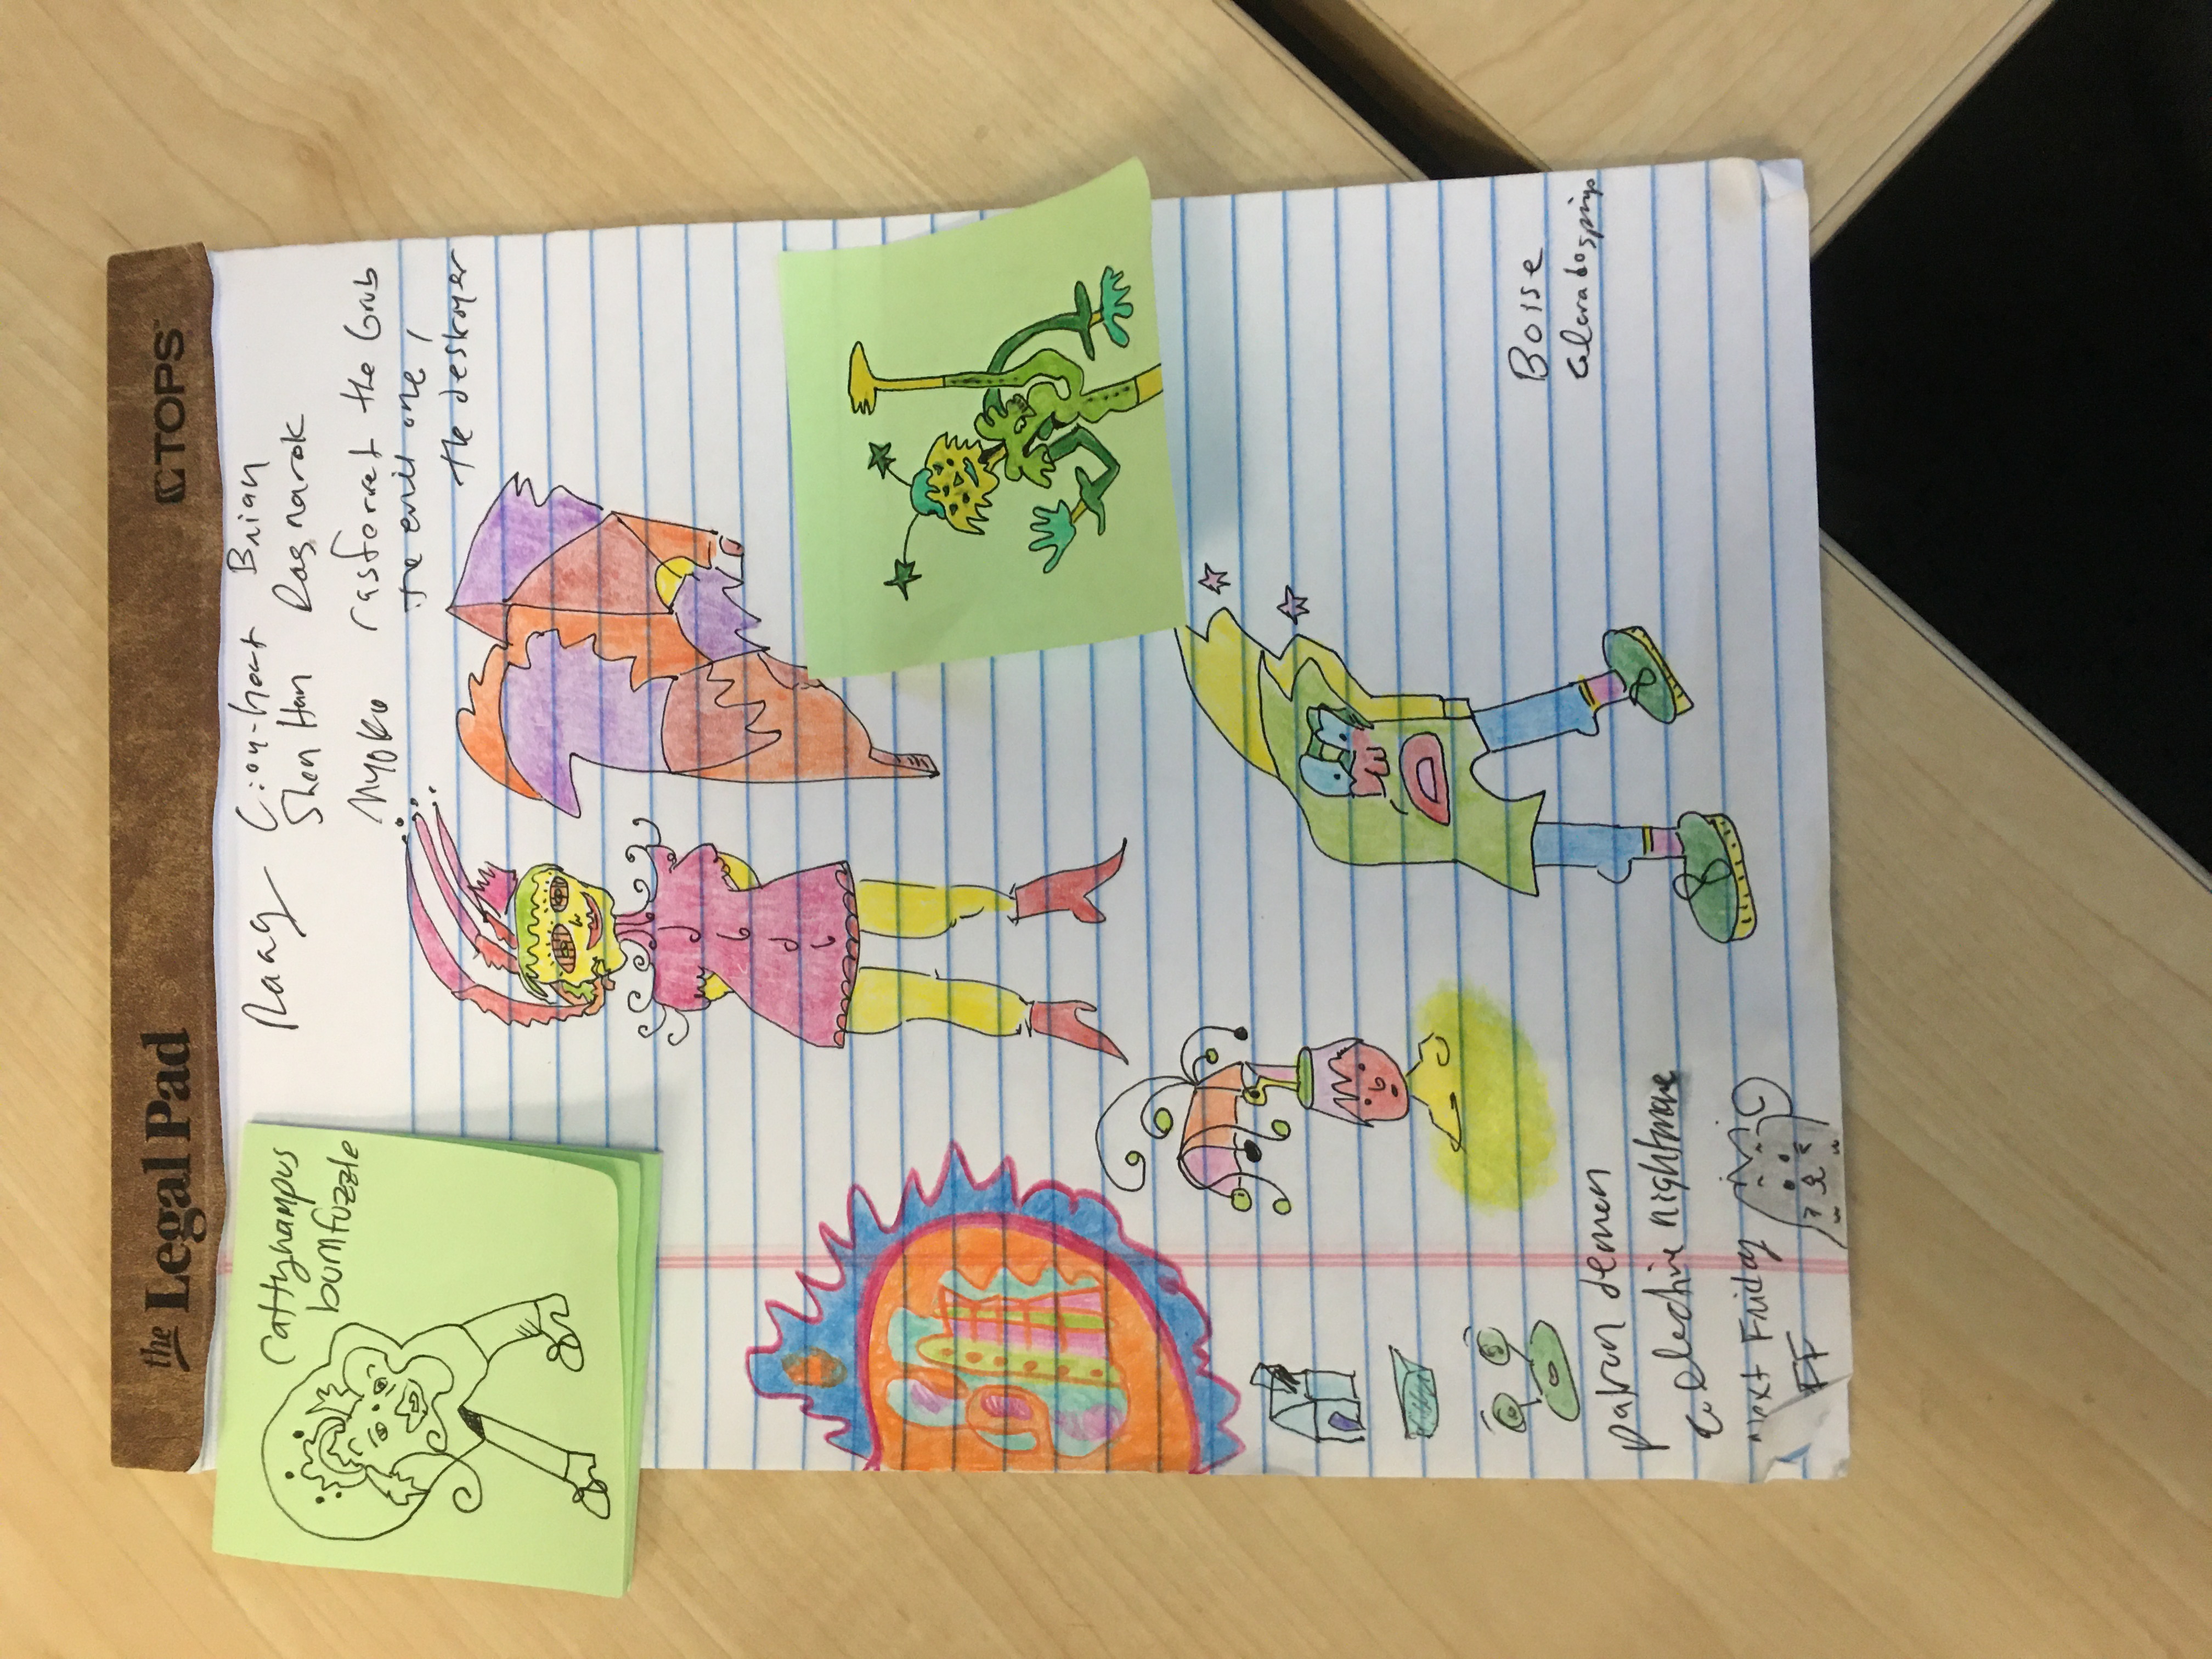 the Legal Pad
TOPS
Cattyhampus
bumfuzzle
Raag
Brian
Shen Han Ragnarok
Myoko rasferret the Grub
the evil one,
the destroyer
Boise
Colorado springs
patron demon
collective nightmare
next Friday
FF